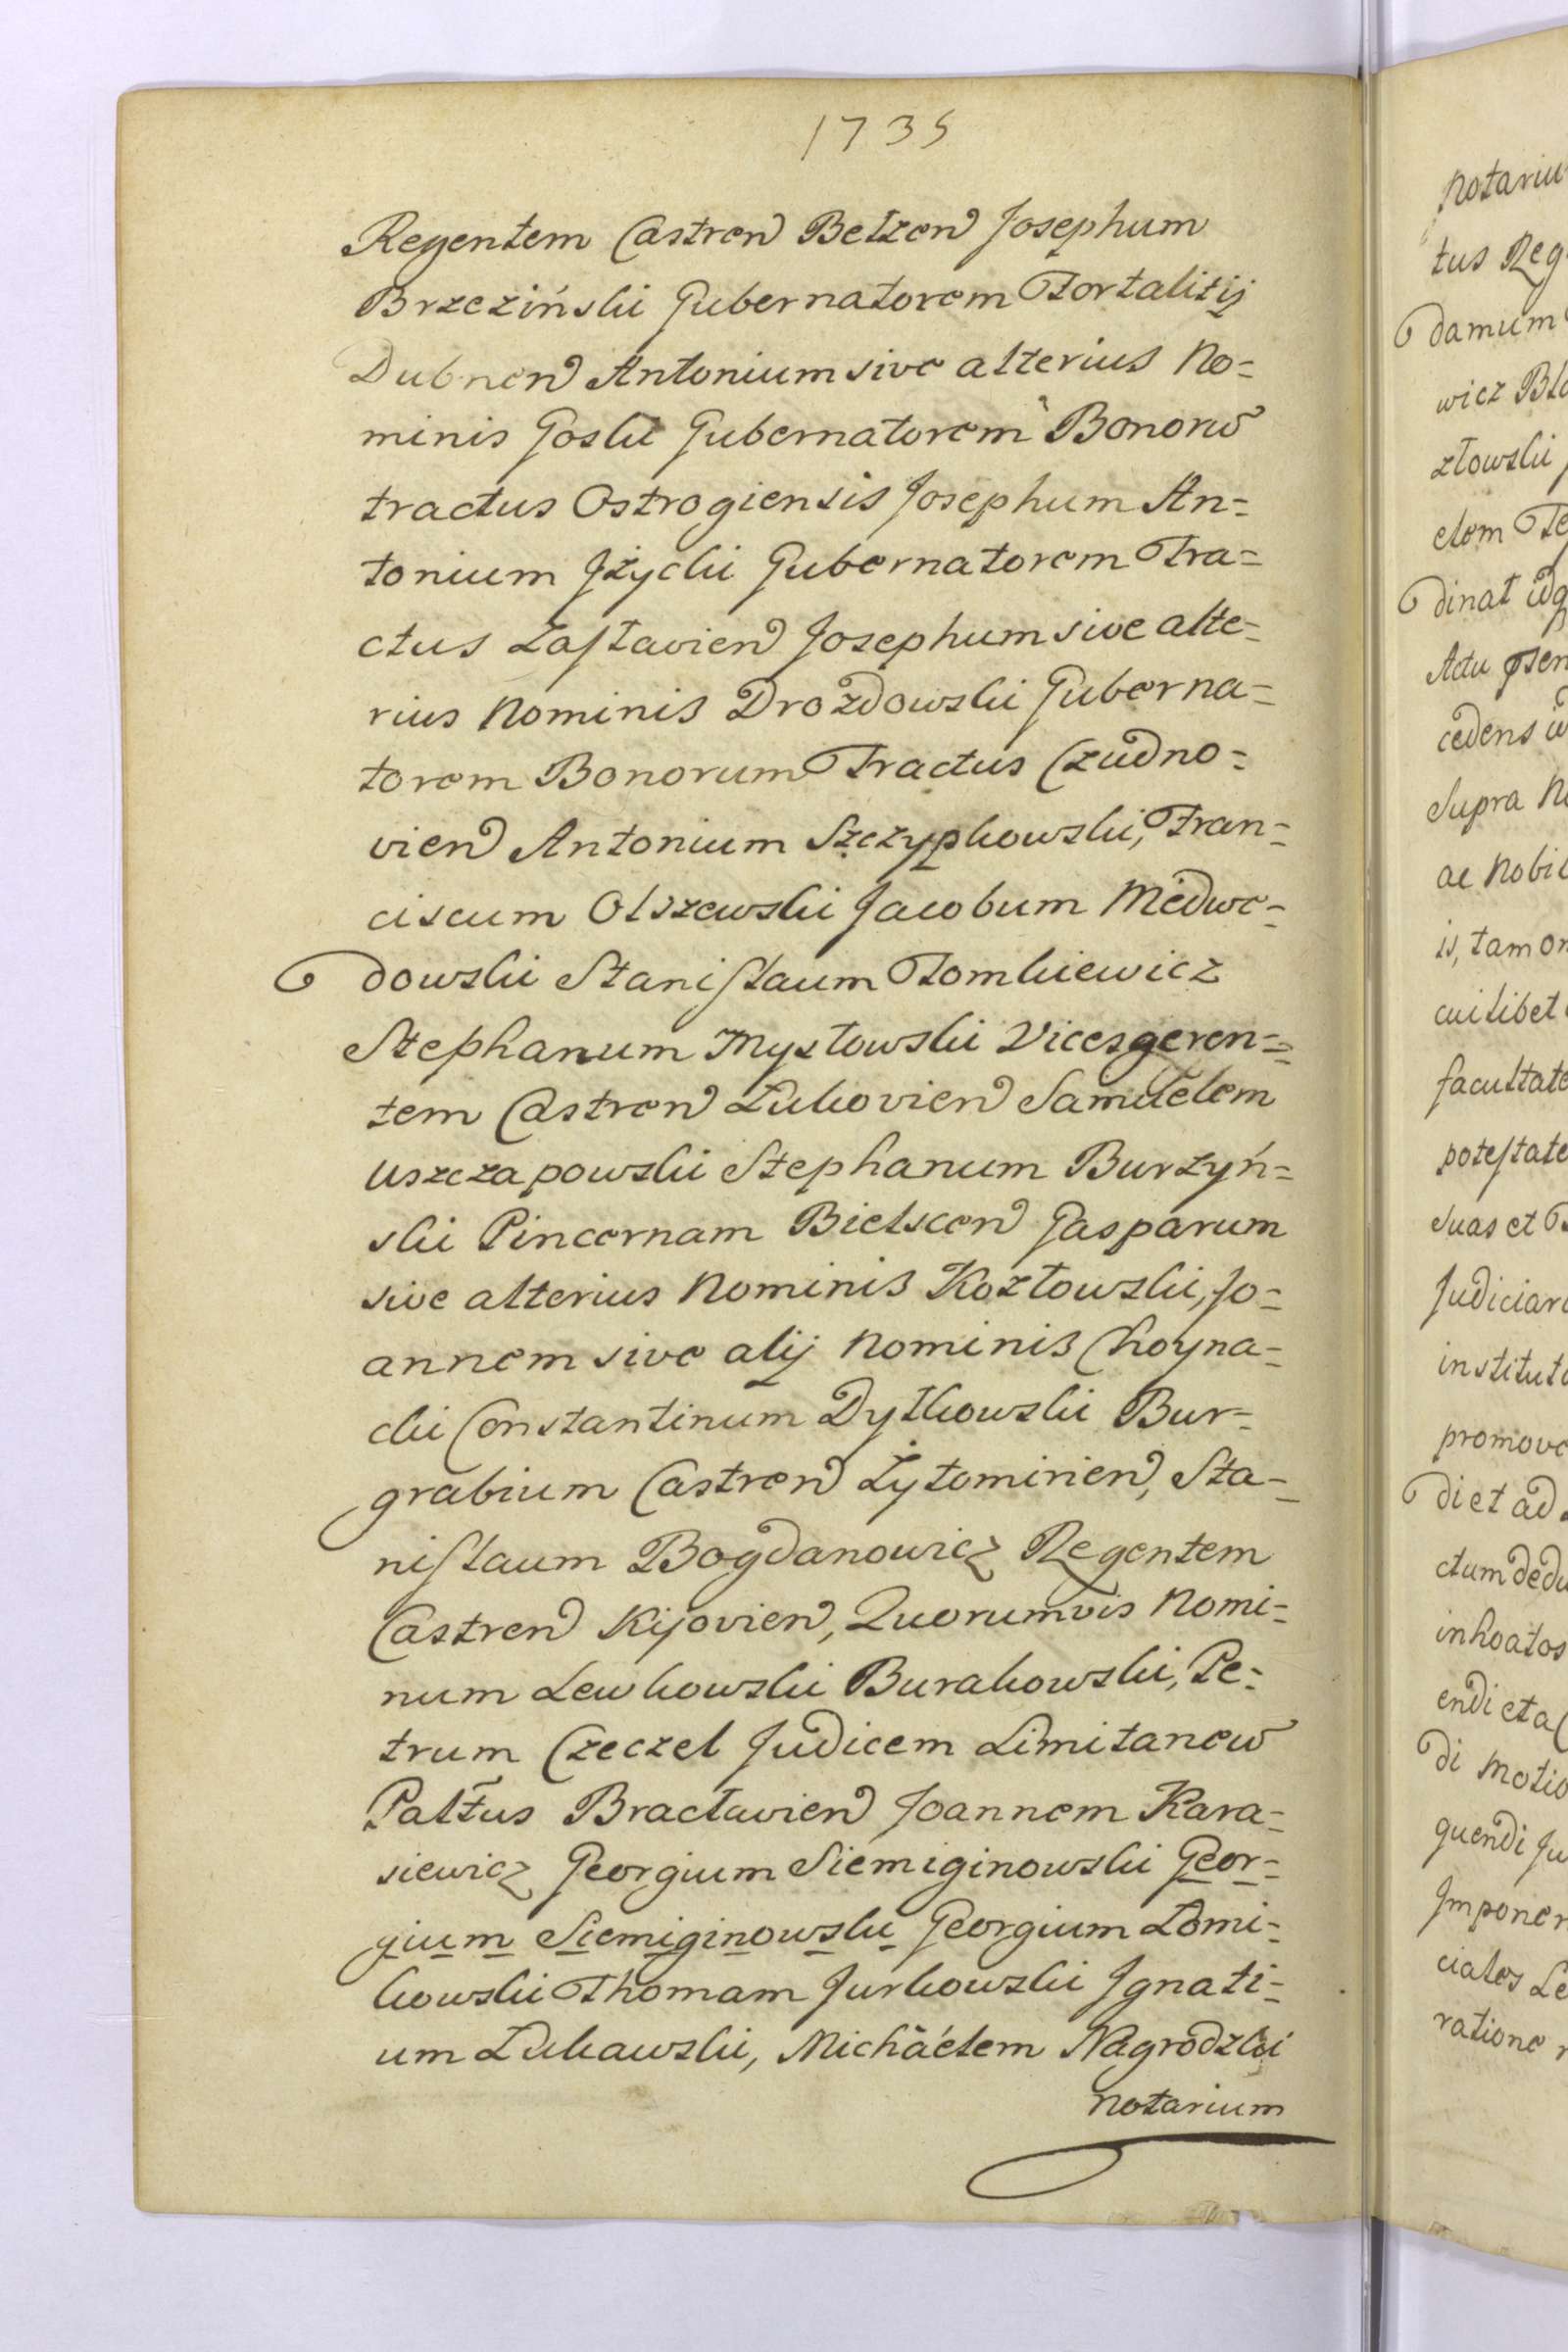 1735
Regentem Castren Betzen Josephum
Brzeziński Gubernatorem Fortalitij
Dubnen Antonium sive alterius No=
minis Goski Gubernatorem Bonorū
tractus Ostrogiensis Josephum An=
tonium Jżycki Gubernatorem Tra=
ctus Zaſlavien Josephum sive alte=
rius Nominis Drozdowski Guberna=
torem Bonorum Tractus Czudno=
vien Antonium Szczypkowski, Fran=
ciscum Olszewski Jacobum Medwe=
dowski Staniſlaum Tomkiewicz
Stephanum Mysłowski Vicesgeren=
tem Castren Lukovien Samuelem
Uszczapowski Stephanum Burzyń=
ski Pincernam Bielscen Gasparum
sive alterius Nominis Kozłowski, Jo=
annem sive alij Nominis Choyna=
cki Constantinum Dytkowski Bur=
grabium Castren Żytomirien, Sta=
niſlaum Bogdanowicz Regentem
Castren Kijovien, Quorumvis Nomi=
num Lewkowski Burakowski, Pe=
trum Czeczel Judicem Limitaneū
Paltūs Braclavien Joannem Kara=
siewicz Georgium Siemiginowski Geor=
gium Siemiginowski Georgium Łomi=
kowski Thomam Jurkowski Ignati=
um Lukawski, Michäélem Nagrodzki
notarium
notariu
tus Reg
damum
wicz
złowski
dinat
Actu
cedens
Supra
ac Nobil
is, tam
cuilibet
facultate
poteſtate
Suas et
Judiciari
institut
promove
di et ad
ctum dedu
inhoatos
endi et a
di Motio
quendi Ju
Imponen
ciales Le
ratione